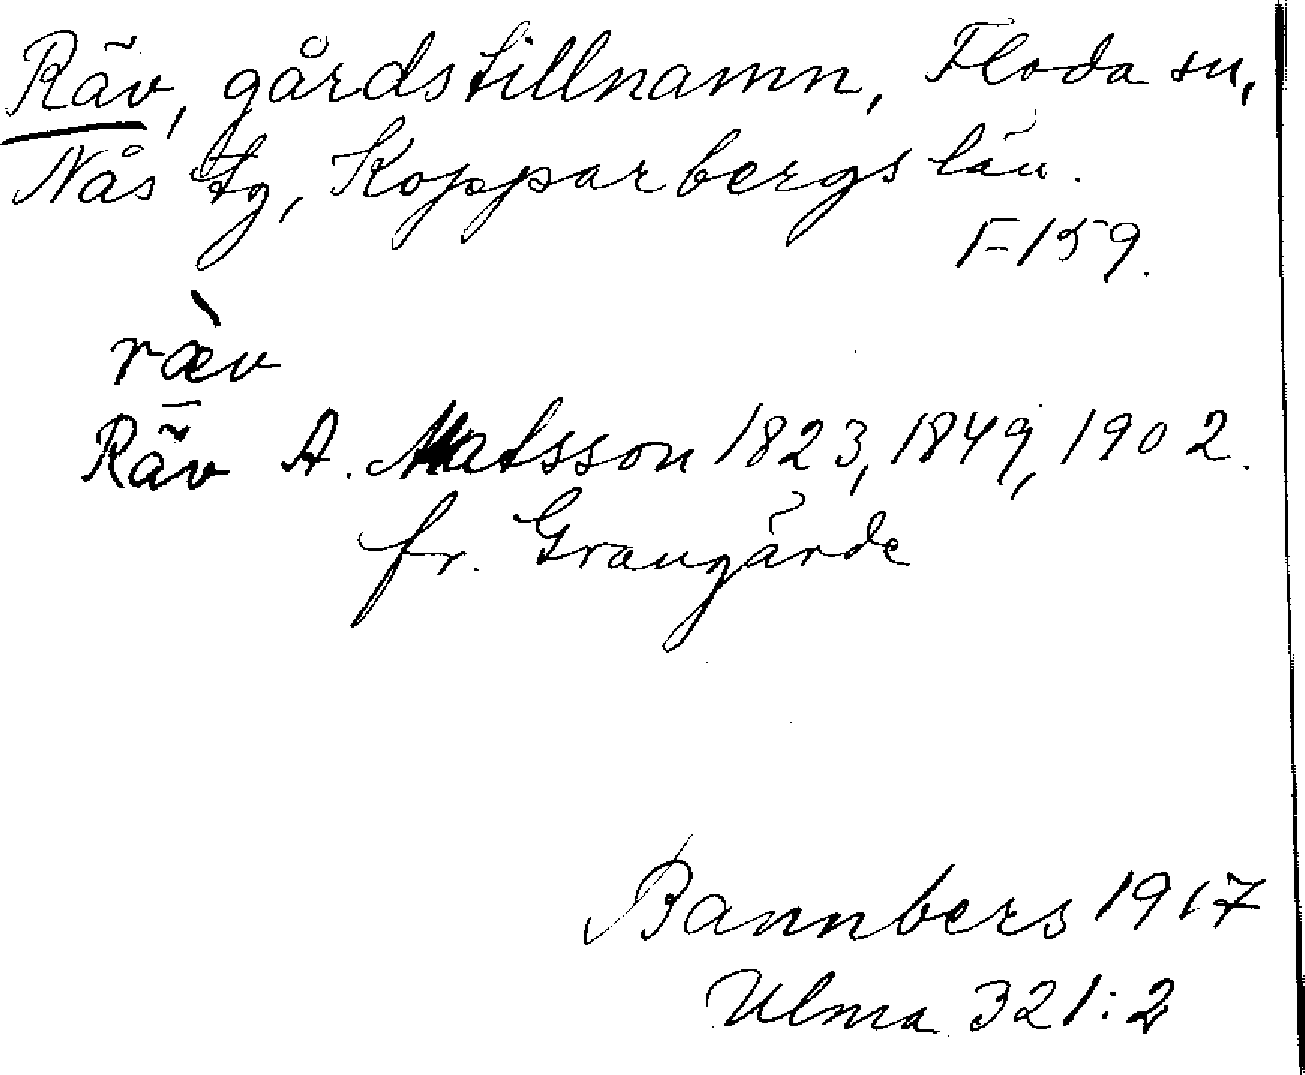 Räv, gårdstillnamn, Floda sn,
Nås tg, Kopparbergs län.
F 159.
ræ̀v
Räv A. Matsson 1823, 1849, 1902.
fr. Grangärde
Bannbers 1917
Ulma 321:2